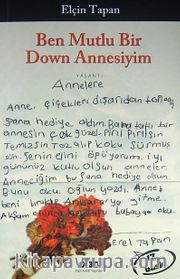 Elçin Tapan
Ben Mutlu Bir
Down Annesiyim
YAŞANTI
Annelere
Anne. Çiçekleri dışarıdan topladım
Sana hediye aldım. Bana tatlı bir
annesin çok güzel Pırıl Pırılsın
Temizsin Tozalıp koku sürmüş
sün. Senin elini öpüyorum. iyi
gününüz kutlu olsun anneler
Anneciğim bu Sana hediye olsun
Bunu oku. Oğlun yazdı. Anne
beni bırakıp Ankara'ya gitme.
Akşam
babaya ok
erel Tapan
kitapavrupa.com